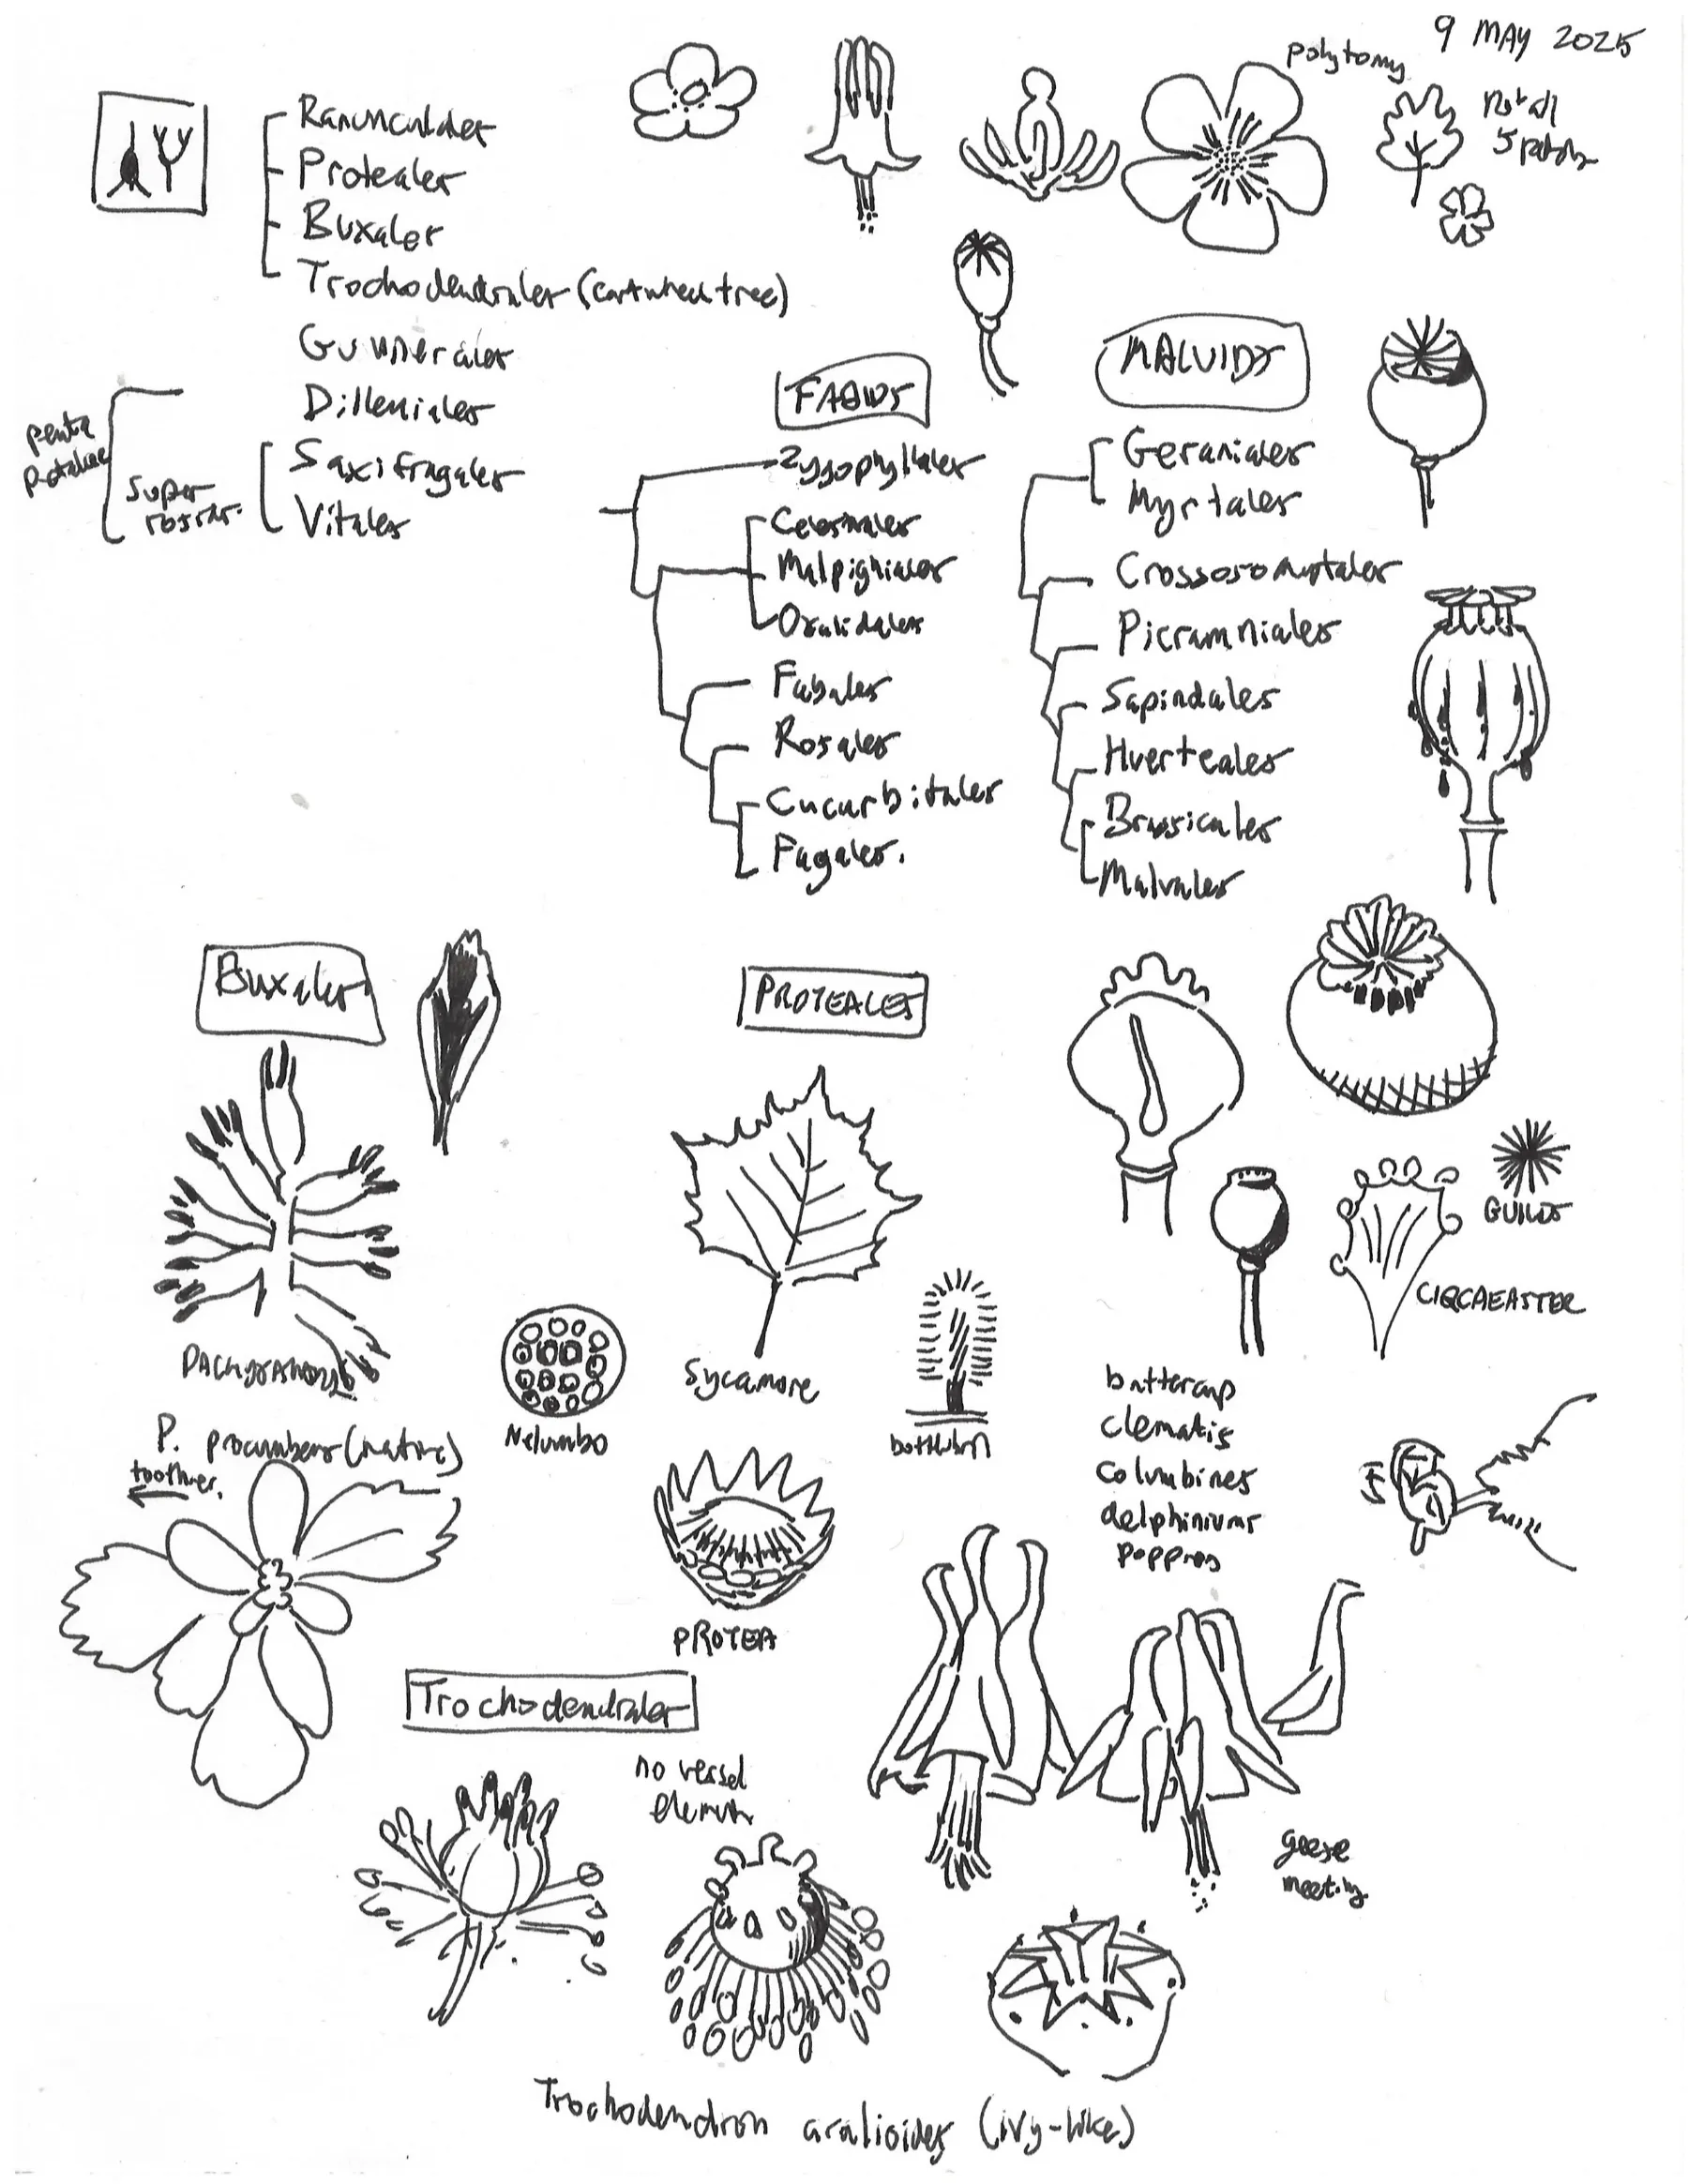 9 MAY 2025
polytomy
not all
5 petals
Ranunculales
Proteales
Buxales
Trochodendrales (cartwheel tree)
Gunnerales
Dilleniales
penta
petalae
Super
rosids.
Saxifragales
Vitales
FABIDS
Zygophyllales
Celastrales
Malpighiales
Oxalidales
Fabales
Rosales
Cucurbitales
Fagales.
MALVIDS
Geraniales
Myrtales
Crossosomatales
Picramniales
Sapindales
Huerteales
Brassicales
Malvales
Buxales
PACHYSANDRA
P. procumbens (native)
toothier.
PROTEALES
Sycamore
Nelumbo
bottlebrush
PROTEA
GUILDS
CIRCAEASTER
buttercup
clematis
columbines
delphiniums
poppies
geese
meeting
Trochodendrales
no vessel
elements
Trochodendron aralioides (ivy-like)